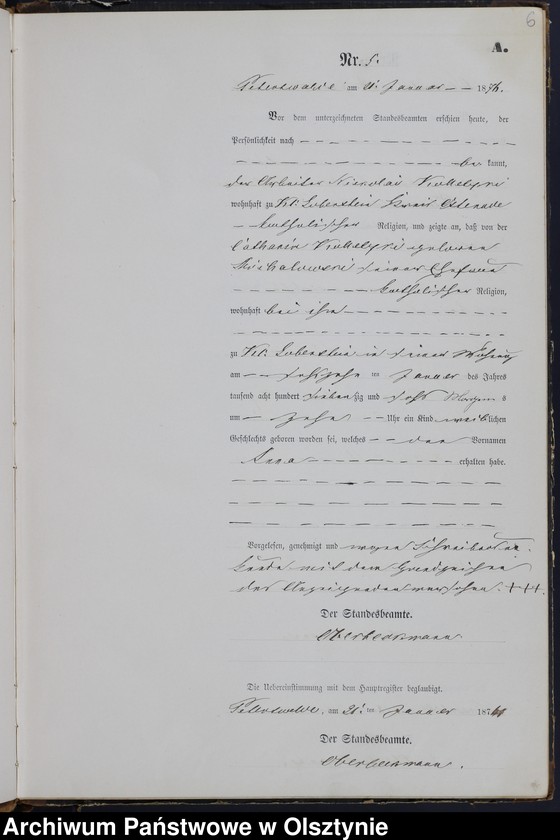 6
A.
Nr. 5.
am Januar 1876.
Vor dem unterzeichneten Standesbeamten erschien heute, der
Persönlichkeit nach
be kannt,
der Arbeiter
wohnhaft zu Kl. Lobenstein Kreis Osterode
katholischer Religion, und zeigte an, daß von der
Catharina geborenen
seiner Ehefrau
katholischer Religion,
wohnhaft bei ihm
zu Kl. Lobenstein in seiner Wohnung
am ten Januar des Jahres
tausend acht hundert sieben zig und sechs Morgens
um zehn Uhr ein Kind weiblichen
Geschlechts geboren worden sei, welches den Vornamen
Anna erhalten habe.
Vorgelesen, genehmigt und wegen Schreibens un-
kunde mit dem Handzeichen
des Anzeigenden versehen. +++.
Der Standesbeamte.
Oberbeckmann
Die Uebereinstimmung mit dem Hauptregister beglaubigt.
am 21 ten Januar 1876
Der Standesbeamte.
Oberbeckmann.
Archiwum Państwowe w Olsztynie